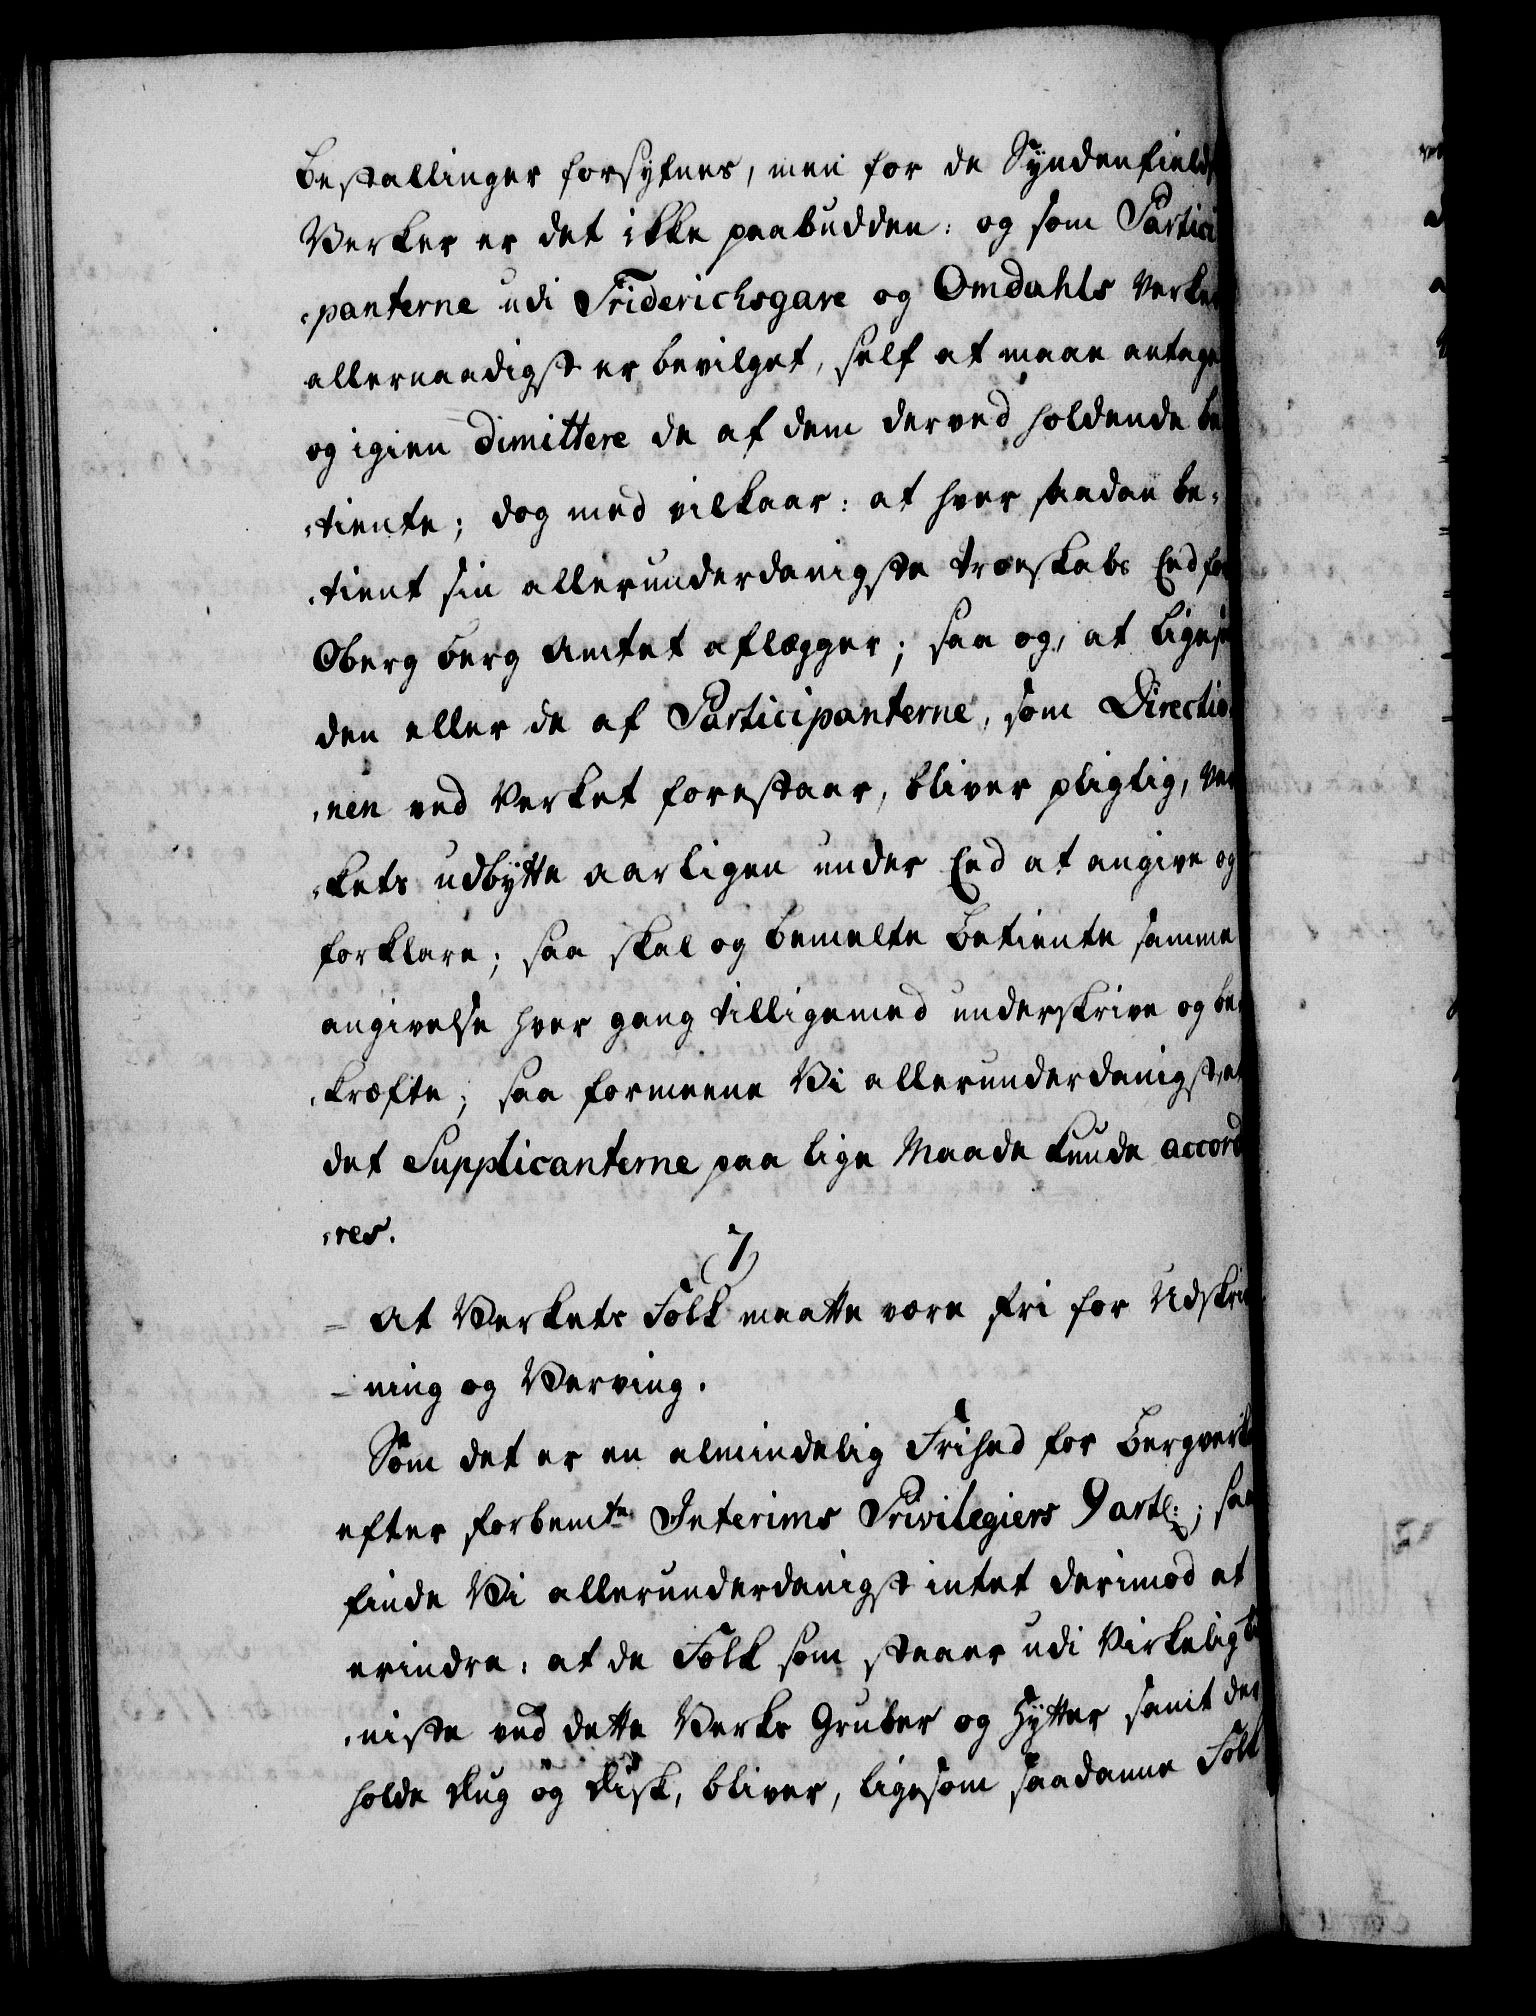 Bestallinger forsynes, men for de Syndenfield
Verker er det ikke paabudden: og som Partici
-panterne udi Friderichsgave og Omdahls Verker
allernaadigst er bevilget, self at maae antage
og igien dimittere de af dem derved holdende be
-tiente; dog med vilkaar: at hver saadan be-
-tient sin allerunderdanigste troeskabs Eed for
Oberg berg Amtet aflegger; saa og, at ligesom
den eller de af Participanterne, som Directio
-nen ved Verket forestaar, bliver pligtig, Ver
-kets udbytte aarligen under Eed at angive og
forklare; saa skal og bemelte Betiente samme
angivelse hver gang tilligemed underskrive og be-
-kræfte; saa formeene Vi allerunderdanigst, at
det Supplicanterne paa lige Maade kunde accord
-res.
7
- At Verkets Folk maatte være fri for Udskriv
- ning og Verving.
Som det er en almindelig Frihed for Bergverk
efter forbemte Interims Privilegiers 9 artl:; saa
finde Vi allerunderdanigst intet derimod at
erindre, at de Folk som staaer udi Virkelig ti
-niste ved dette Verks Gruber og Hytter samt der
holde Dug og Disk, bliver, ligesom saadanne Folk